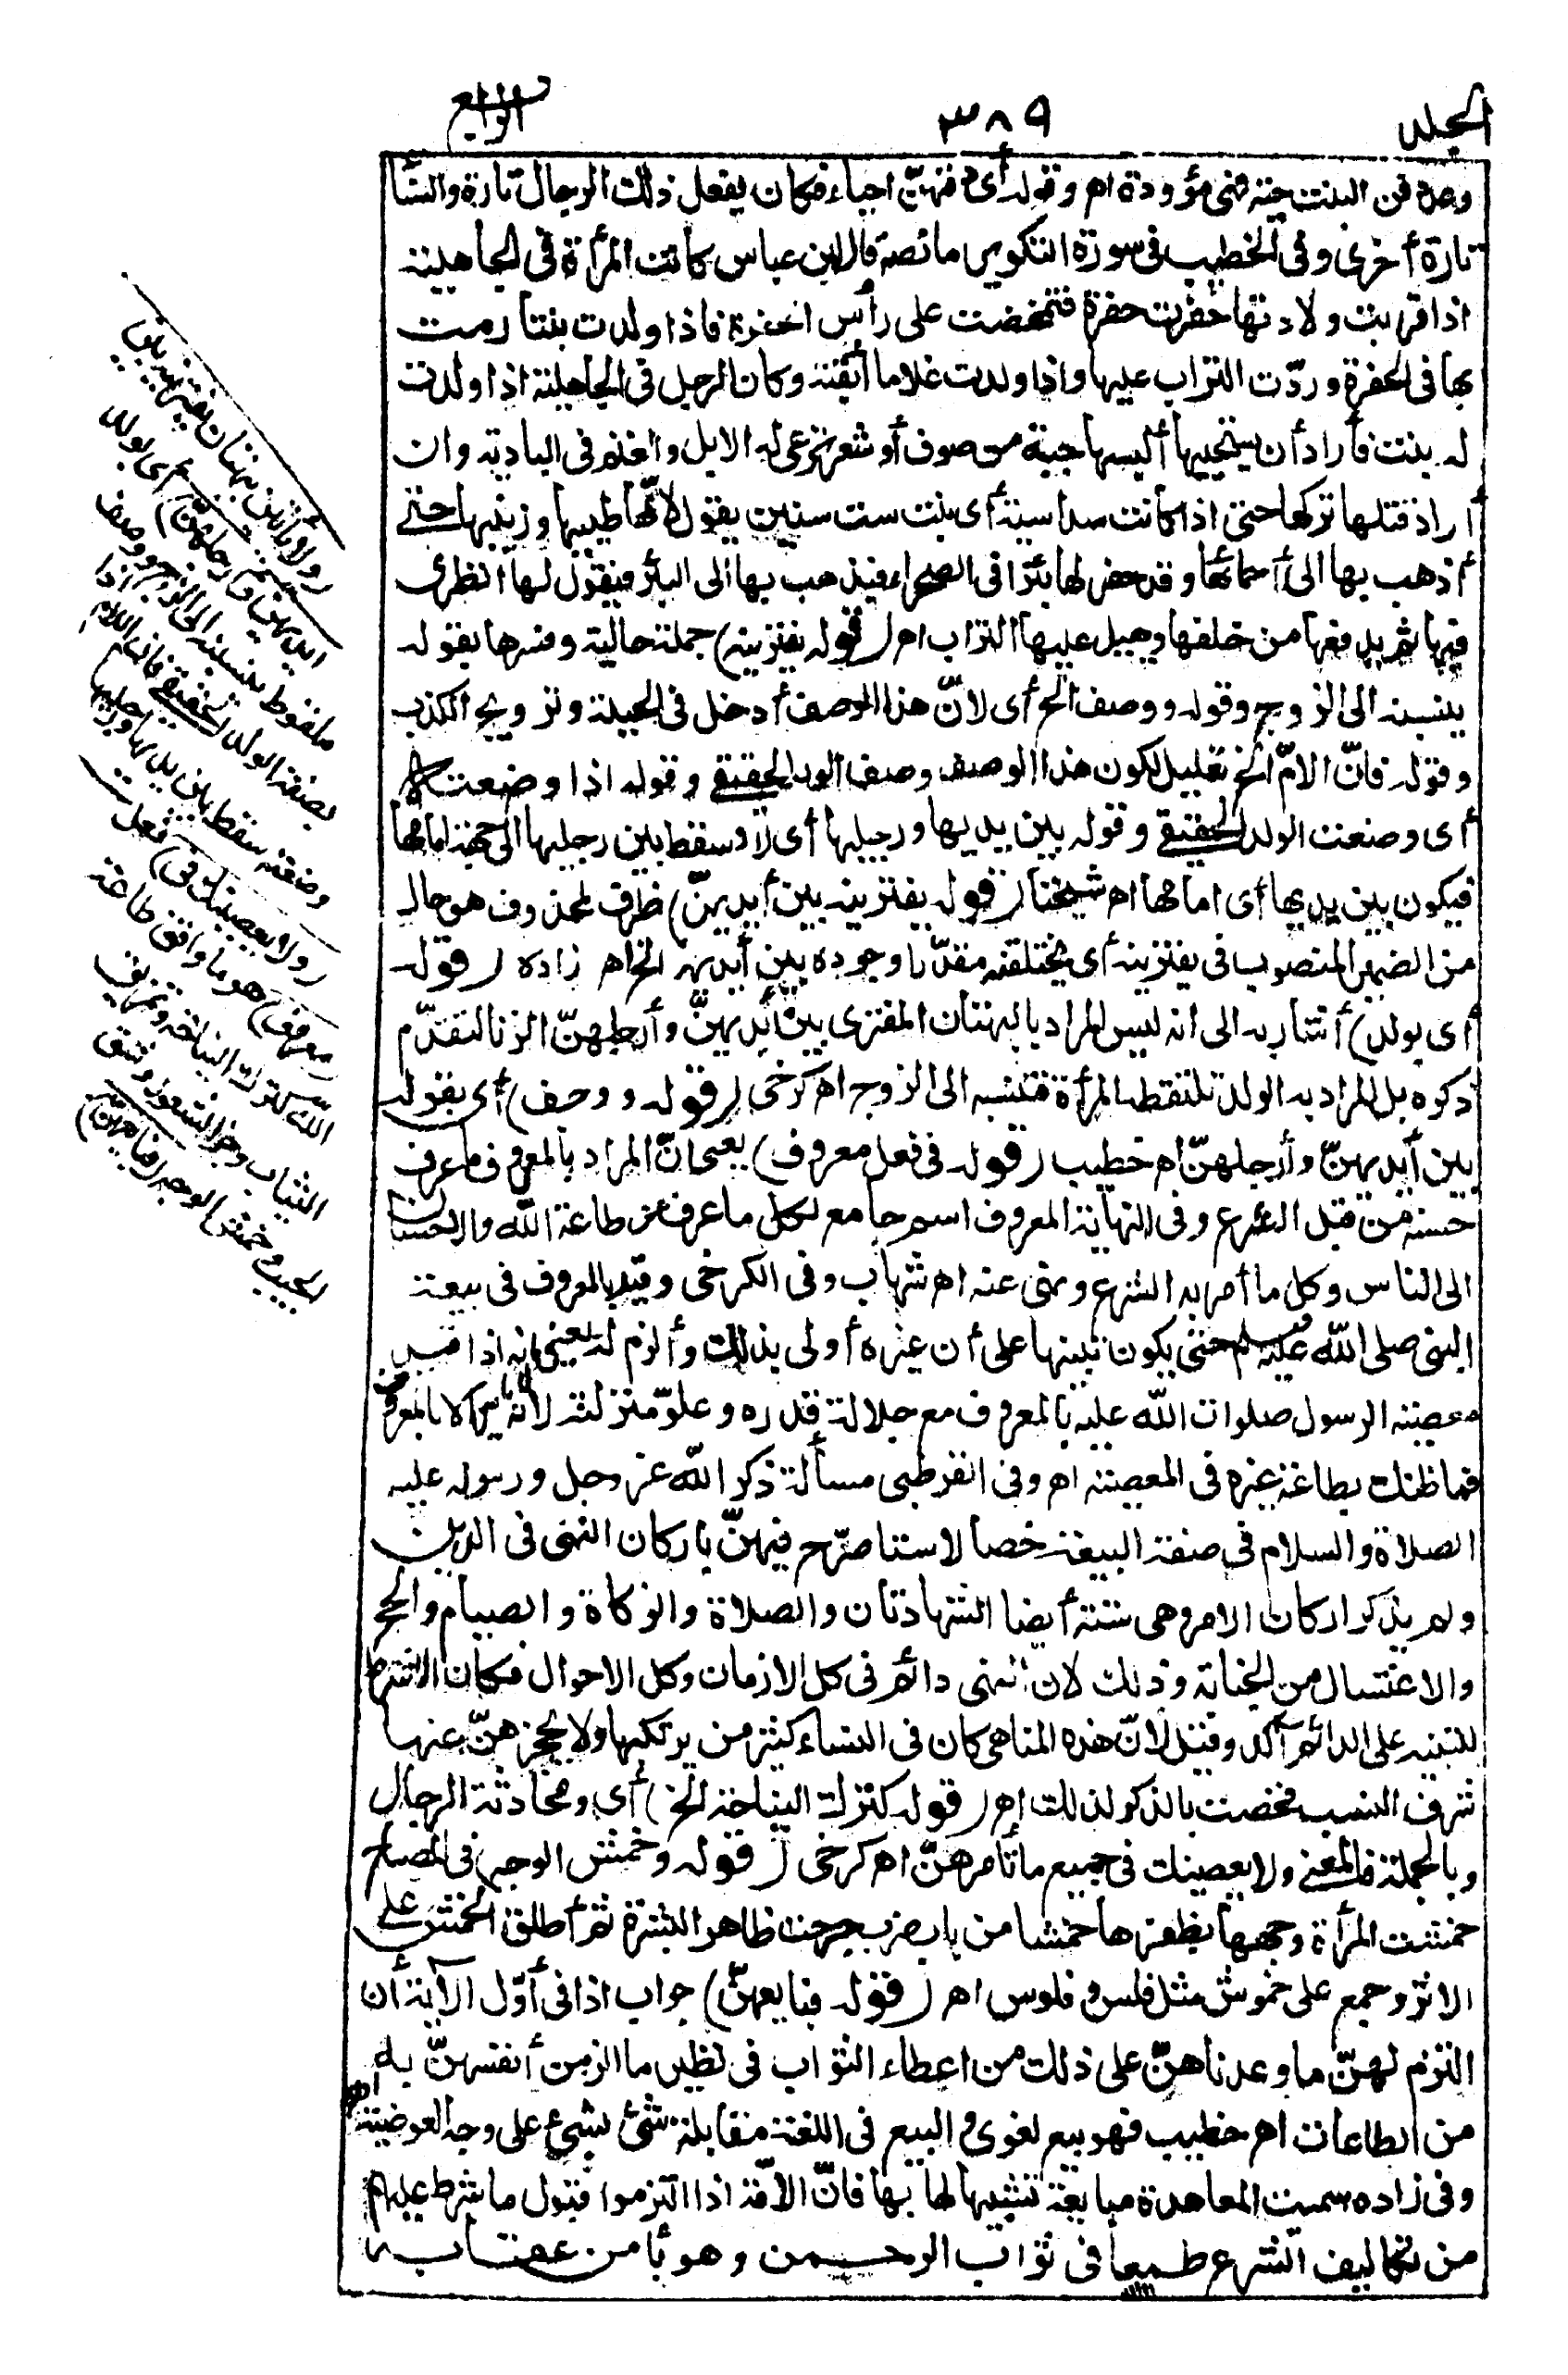 الجلد ٣٨٩ الرابع
وصدفن البنت حية فهى مؤودة اه وقوله أى دفنهنّ احياء فكان يفعل ذلك الرجال تارة والنسا
تارة أخرى وفى الخطيب فى سورة التكوير ما نصه قال ابن عباس كانت المرأة فى الجاهلية
اذا قربت ولادتها حفرت حفرة فتمخضت على رأس الحفرة فاذا ولدت بنتا رمت
بها فى الحفرة وردّت التراب عليها واذا ولدت غلاما أبقته وكان الرجل فى الجاهلية اذا ولدت
له بنت فأراد أن يستحييها ألبسها جبة من صوف أو شعر ترعى له الابل والغنم فى البادية وان
أراد قتلها تركها حتى اذا كانت سداسية أى بنت ست سنين يقول لأمّها طيبيها وزينيها حتى
أذهب بها الى أحمائها وقد حفر لها بئرا فى الصحراء فيذهب بها الى البئر فيقول لها انظرى
فيها ثم يدفعها من خلفها ويهيل عليها التراب اه (قوله يفترينه) جملة حالية وفسرها بقوله
ينسبنه الى الزوج وقوله ووصف الخ أى لانّ هذا الوصف أدخل فى الحيلة وترويج الكذب
وقوله فانّ الامّ الخ تعليل لكون هذا الوصف وصف الولد الحقيقى وقوله اذا وضعت
أى وضعت الولد الحقيقى وقوله بين يديها ورجليها أى لانه سقط بين رجليها الى جهة امامها
فيكون بين يديها أى امامها اه شيخنا (قوله يفترينه بين أيديهنّ) ظرف لمحذوف هو حال
من الضمير المنصوب فى يفترينه أى يختلقنه مقدّرا وجوده بين أيديهن الخ اه زاده (قوله
أى بولد) أشار به الى انه ليس المراد بالبهتان المفترى بين أيديهنّ وأرجلهنّ الزنا لتقدّم
ذكره بل المراد به الولد تلتقطه المرأة فتنسبه الى الزوج اه كرخى (قوله ووصف) أى بقوله
بين أيديهنّ وأرجلهنّ اه خطيب (قوله فى فعل معروف) يعنى انّ المراد بالمعروف ما عرف
حسنه من قبل الشرع وفى النهاية المعروف اسم جامع لكل ما عرف من طاعة الله والاحسان
الى الناس وكل ما أمر به الشرع ونهى عنه اه شهاب وفى الكرخى وقيد بالمعروف فى بيعة
النبى صلى الله عليه وسلم حتى يكون تنبيها على أن غيره أولى بذلك وألزم له يعنى انه اذا قيد
معصية الرسول صلوات الله عليه بالمعروف مع جلالة قدره وعلوّ منزلته لأنه لا يأمر الا بالمعروف
فما ظنك بطاعة غيره فى المعصية اه وفى القرطبى مسألة ذكر الله عز وجل ورسوله عليه
الصلاة والسلام فى صفة البيعة خصالا ستا صرّح فيهنّ باركان النهى فى الدين
ولم يذكر اركان الامر وهى ستة أيضا الشهادتان والصلاة والزكاة والصيام والحج
والاغتسال من الجنابة وذلك لان النهى دائم فى كل الازمان وكل الاحوال فكان اشتراط
التنبيه على الدائم آكد وقيل لانّ هذه المناهى كان فى النساء كثير من يرتكبها ولا يحجزهنّ عنها
شرف النسب فخصت بالذكر لذلك اه (قوله كترك النياحة الخ) أى ومحادثة الرجال
وبالجملة فالمعنى ولا يعصينك فى جميع ما تأمرهنّ اه كرخى (قوله وخمش الوجه) فى المصباح
خمشت المرأة وجهها بظفرها خمشا من باب ضرب جرحت ظاهر البشرة ثم أطلق الخمش على
الاثر وجمع على خموش مثل فلس وفلوس اه (قوله فبايعهنّ) جواب اذا فى أوّل الآية أى
التزم لهنّ ما وعدناهنّ على ذلك من اعطاء الثواب فى نظير ما الزمن أنفسهنّ به
من الطاعات اه خطيب فهو بيع لغوى والبيع فى اللغة مقابلة شئ بشئ على وجه العوضية اه
وفى زاده سميت المعاهدة مبايعة تشبيها لها بها فانّ الامّة اذا التزموا قبول ما شرط عليهم
من تكاليف الشرع طمعا فى ثواب الرحمن وهربا من عقابه
(ولا يأتين ببهتان يفترينه بين
أيديهنّ وأرجلهنّ) أى بولد
ملقوط ينسبنه الى الزوج ووصف
بصفة الولد الحقيقى فان الام اذا
وضعته سقط بين يديها ورجليها
(ولا يعصينك فى) فعل
(معروف) هو ما وافق طاعة
الله كترك النياحة وتمزيق
الثياب وجز الشعور وشق
الجيب وخمش الوجه (فبايعهنّ)